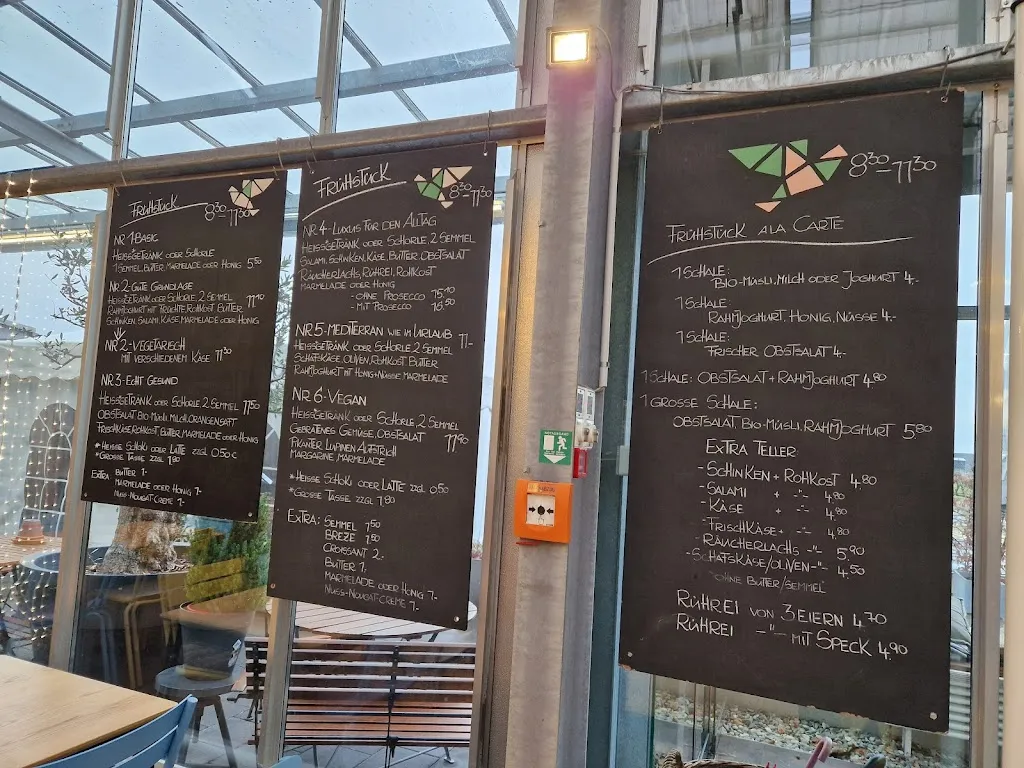 FRÜHSTÜCK 8³⁰-11³⁰
NR 1 BASIC
HEISSGETRÄNK ODER SCHORLE
1 SEMMEL, BUTTER, MARMELADE ODER HONIG 5,50
NR. 2-GUTE GRUNDLAGE
HEISSGETRÄNK ODER SCHORLE, 2 SEMMEL 11,10
RAHMJOGHURT MIT FRÜCHTE, ROHKOST BUTTER
SCHINKEN, SALAMI, KÄSE, MARMELADE ODER HONIG
NR 2-VEGETARISCH
MIT VERSCHIEDENEM KÄSE 11,30
NR 3-ECHT GESUND
HEISSGETRÄNK ODER SCHORLE 2 SEMMEL 11,50
OBSTSALAT BIO-MÜSLI, MILCH, ORANGENSAFT
FRISCHKÄSE, ROHKOST, BUTTER, MARMELADE ODER HONIG
*HEISSE SCHOKI ODER LATTE ZZGL 0,50 €
*GROSSE TASSE ZZGL 1,80
EXTRA BUTTER 1.-
MARMELADE ODER HONIG 1.-
NUSS-NOUGAT CREME 1.-
FRÜHSTÜCK 8³⁰-11³⁰
NR 4-LUXUS FÜR DEN ALLTAG
HEISSGETRÄNK ODER SCHORLE, 2 SEMMEL
SALAMI, SCHINKEN, KÄSE, BUTTER, OBSTSALAT
RÄUCHERLACHS, RÜHREI, ROHKOST
MARMELADE ODER HONIG
- OHNE PROSECCO 15,10
- MIT PROSECCO 16,50
NR 5-MEDITERRAN WIE IM URLAUB
HEISSGETRÄNK ODER SCHORLE 2 SEMMEL 11.-
SCHAFSKÄSE, OLIVEN, ROHKOST BUTTER
RAHMJOGHURT MIT HONIG+NÜSSE, MARMELADE
NR. 6-VEGAN
HEISSGETRÄNK ODER SCHORLE, 2 SEMMEL
GEBRATENES GEMÜSE, OBSTSALAT 11,90
PIKANTER LUPINEN AUFSTRICH
MARGARINE, MARMELADE
*HEISSE SCHOKI ODER LATTE ZZGL 0,50
*GROSSE TASSE ZZGL 1,80
EXTRA: SEMMEL 1,50
BREZE 1,50
CROISSANT 2.-
BUTTER 1.-
MARMELADE ODER HONIG 1.-
NUSS-NOUGAT CREME 1.-
8³⁰-11³⁰
FRÜHSTÜCK A LA CARTE
1 SCHALE:
BIO-MÜSLI, MILCH ODER JOGHURT 4.-
1 SCHALE:
RAHMJOGHURT, HONIG, NÜSSE 4.-
1 SCHALE:
FRISCHER OBSTSALAT 4.-
1 SCHALE: OBSTSALAT + RAHMJOGHURT 4,80
1 GROSSE SCHALE:
OBSTSALAT, BIO-MÜSLI, RAHMJOGHURT 5,80
EXTRA TELLER
-SCHINKEN + ROHKOST 4,80
-SALAMI + -"- 4,80
-KÄSE + -"- 4,80
-FRISCHKÄSE + -"- 4,80
-RÄUCHERLACHS -"- 5,90
-SCHAFSKÄSE/OLIVEN -"- 4,50
OHNE BUTTER/SEMMEL
RÜHREI VON 3 EIERN 4,70
RÜHREI -"- MIT SPECK 4,90